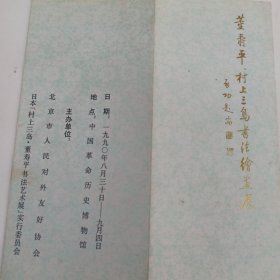 董寿平 村上三島书法绘画展
启功题
日期：一九九〇年八月三十日——九月四日
地点：中国革命历史博物馆
主办单位：
北京市人民对外友好协会
日本「村上三岛・董寿平书法艺术展」实行委员会